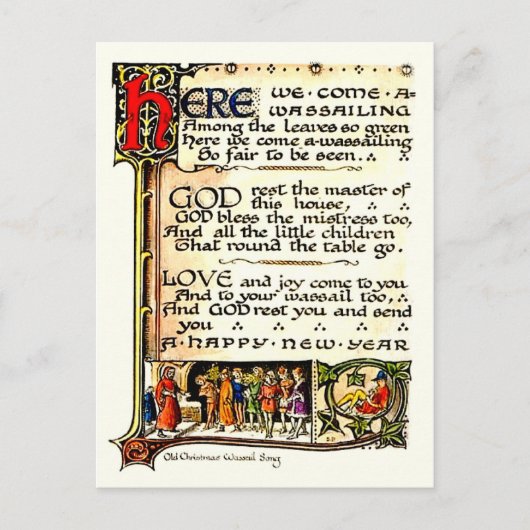 HERE WE · COME A-
WASSAILING
Among the leaves so green
Here we come a-wassailing
So fair to be seen..
GOD rest the master of
this house,
GOD bless the mistress too,
And all the little children
That round the table go.
LOVE and joy come to you
And to your wassail too,
And GOD rest you and send
you
A · HAPPY · NEW · YEAR
S.P.
Old Christmas Wassail Song